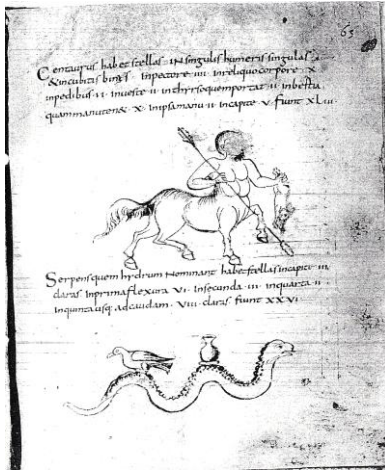 63
Centaurus habet stellas in singulis humeris singulas
& incubitis binas inpectore iiii inreliquo corpore x
inpedibus ii inueste ii inthyrso quem portat ii inbestia
quam manu tenet x inipsa manu ii incapite v fiunt xLiii
Serpens quem hydrum nominant habet stellas incapite iii
claras inprima flexura vi insecunda iii inquarta ii
inquinta usq; adcaudam viii claras fiunt xxvi